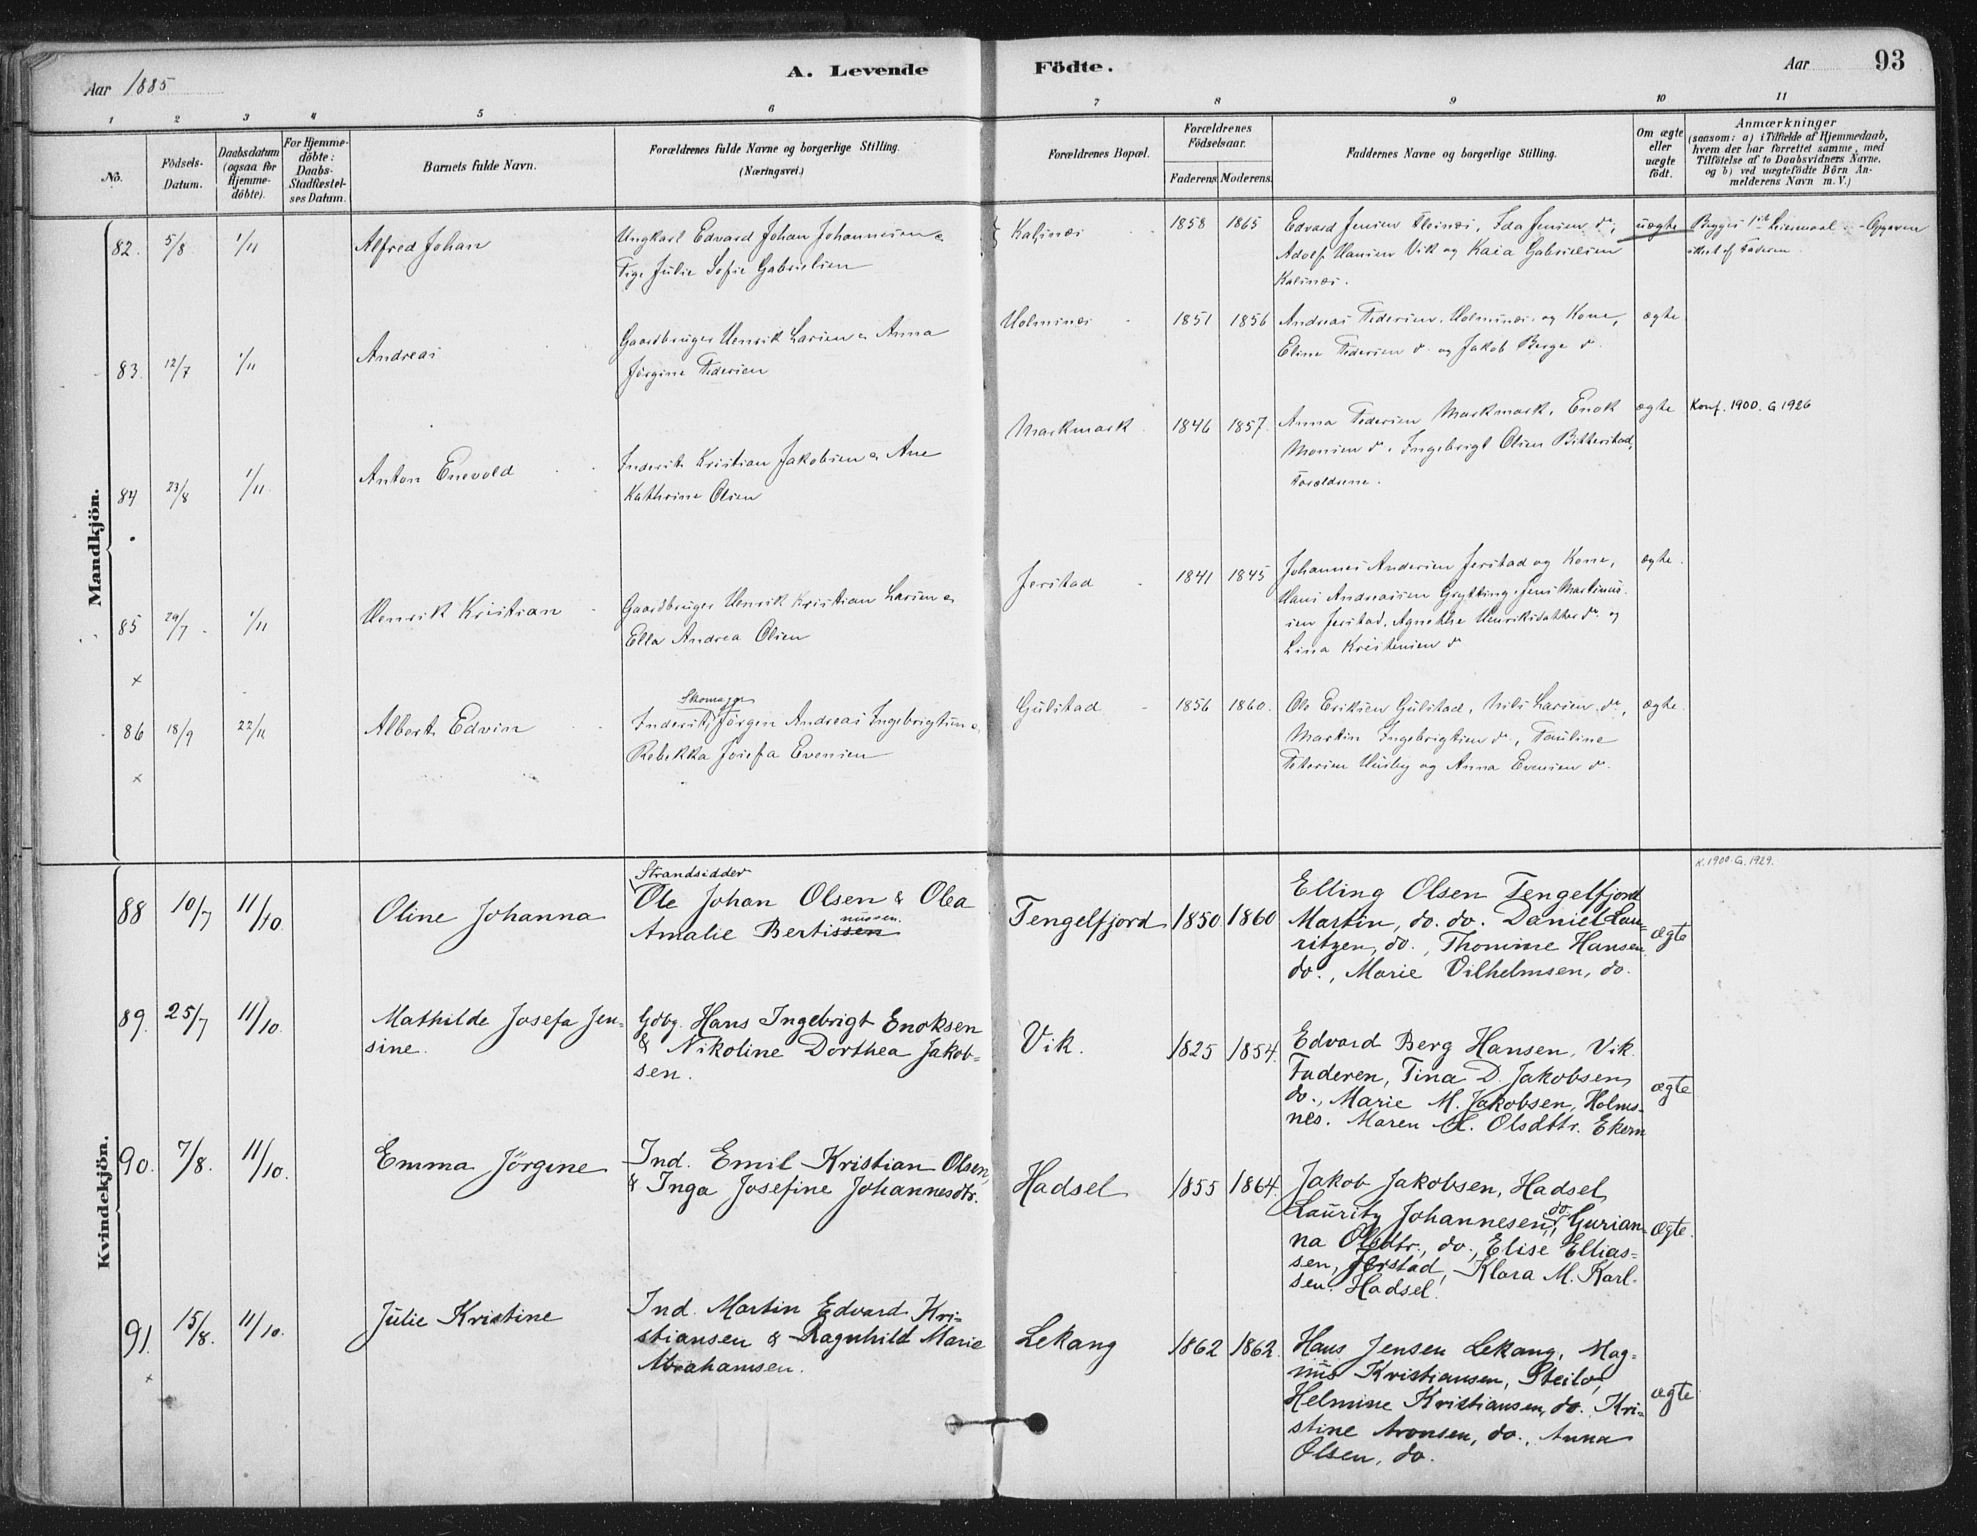 Aar 1885
A. Levende
Födte.
Aar
93
1 2 3 4 5 6 7 8 9 10 11
No.
Födsels-Datum.
Daabsdatum (ogsaa for Hjemme-döbte).
For Hjemme-döbte: Daabs-Stadfæstel-ses Datum.
Barnets fulde Navn.
Forældrenes fulde Navne og borgerlige Stilling.
(Næringsvei.)
Forældrenes Bopæl.
Forældrenes Födselsaar.
Faderens Moderens
Faddernes Navne og borgerlige Stilling.
Om ægte eller uægte født.
Anmærkninger
(saasom: a) i Tilfælde af Hjemmedaab,
hvem der har forrettet samme, med
Tilföielse af to Daabsvidners Navne,
og b) ved uægtefödte Börn An-
melderens Navn m. V.)
Mandkjön.
82. 5/8 1/11 Alfred Johan
Ungkarl Edvard Johan Johannesen &
Pige Julie Sofie Gabrielsen
Kalsnæs 1858 1865
Edvard Jensen Fleinæs, Ida Jensen do,
Adolf Hansen Vik og Kaia Gabrielsen
Kalsnæs.
uægte
Begges 1ste Leiermaal. Opgaven
af Faderen.
83. 12/7 1/11 Andreas
Gaardbruger Henrik Larsen & Anna
Jörgine Pedersen
Holmsnes 1851 1856
Andreas Pedersen, Holmsnes og Kone,
Eline Pedersen do. og Jakob Berge do.
ægte
84 23/8 1/11. Anton Enevold
Inderst Kristian Jakobsen & Ane
Kathrine Olsen
Markmark 1846 1857.
Anna Pedersen Markmark, Enok
Monsen do, Ingebrigt Olsen Bitterstad,
Forældrene.
ægte
Konf. 1900. G 1926
85 29/7. 1/11 Henrik Kristian
Gaardbruger Henrik Kristian Larsen &
Ella Andrea Olsen
Jerstad 1841 1845
Johannes Andersen Jerstad og Kone,
Hans Andreassen Grytting, Jens Martinus-
sen Jerstad, Agnethe Henriksdatter do og
Lina Kristensen do
ægte.
x
86 18/9 22/11 Albert Edvin
Skomager
Inderst, Jörgen Andreas Ingebrigtsen &
Rebekka Josefa Evensen
Gulstad 1856 1860.
Ole Eriksen Gulstad, Nils Larsen do,
Martin Ingebrigtsen do, Pauline
Petersen Husby og Anna Evensen do.
ægte.
x
Kvindekjön.
K. 1900 G. 1929.
88 10/7 11/10. Oline Johanna
Strandsidder
Ole Johan Olsen & Olea
nussen.
Amalie Bertissen
Tengelfjord 1850 1860
Elling Olsen Tengelfjord
Martin, do. do. Daniel Lau-
ritzen, do., Thomine Hansen
do., Marie Vilhelmsen, do.
ægte
89. 25/7 11/10. Mathilde Josefa Jen-
sine.
Gdbg. Hans Ingebrigt Enoksen
& Nikoline Dorthea Jakob-
sen.
Vik. 1825 1854.
Edvard Berg Hansen, Vik.
Faderen, Tina D. Jakobsen,
do., Marie M. Jakobsen, Holms-
nes. Maren K. Olsdttr. Ekern
ægte
90. 7/8. 11/10. Emma Jörgine
Ind. Emil Kristian Olsen,
& Inga Josefine Johannesdtr.
Hadsel 1855 1864.
Jakob Jakobsen, Hadsel
Lauritz Johannesen, do, Gurian-
na Olsdtr., do., Elise Ellias-
sen, Jerstad, Klara M. Karl-
sen. Hadsel.
ægte.
91. 15/8. 11/10. Julie Kristine
Ind. Martin Edvard Kri-
stiansen & Ragnhild Marie
Abrahamsen.
Lekang 1862 1862.
Hans Jensen Lekang, Mag-
nus Kristiansen, Steilo,
Helmine Kristiansen, do. Kri-
stine Aronsen, do., Anna
Olsen, do.
ægte